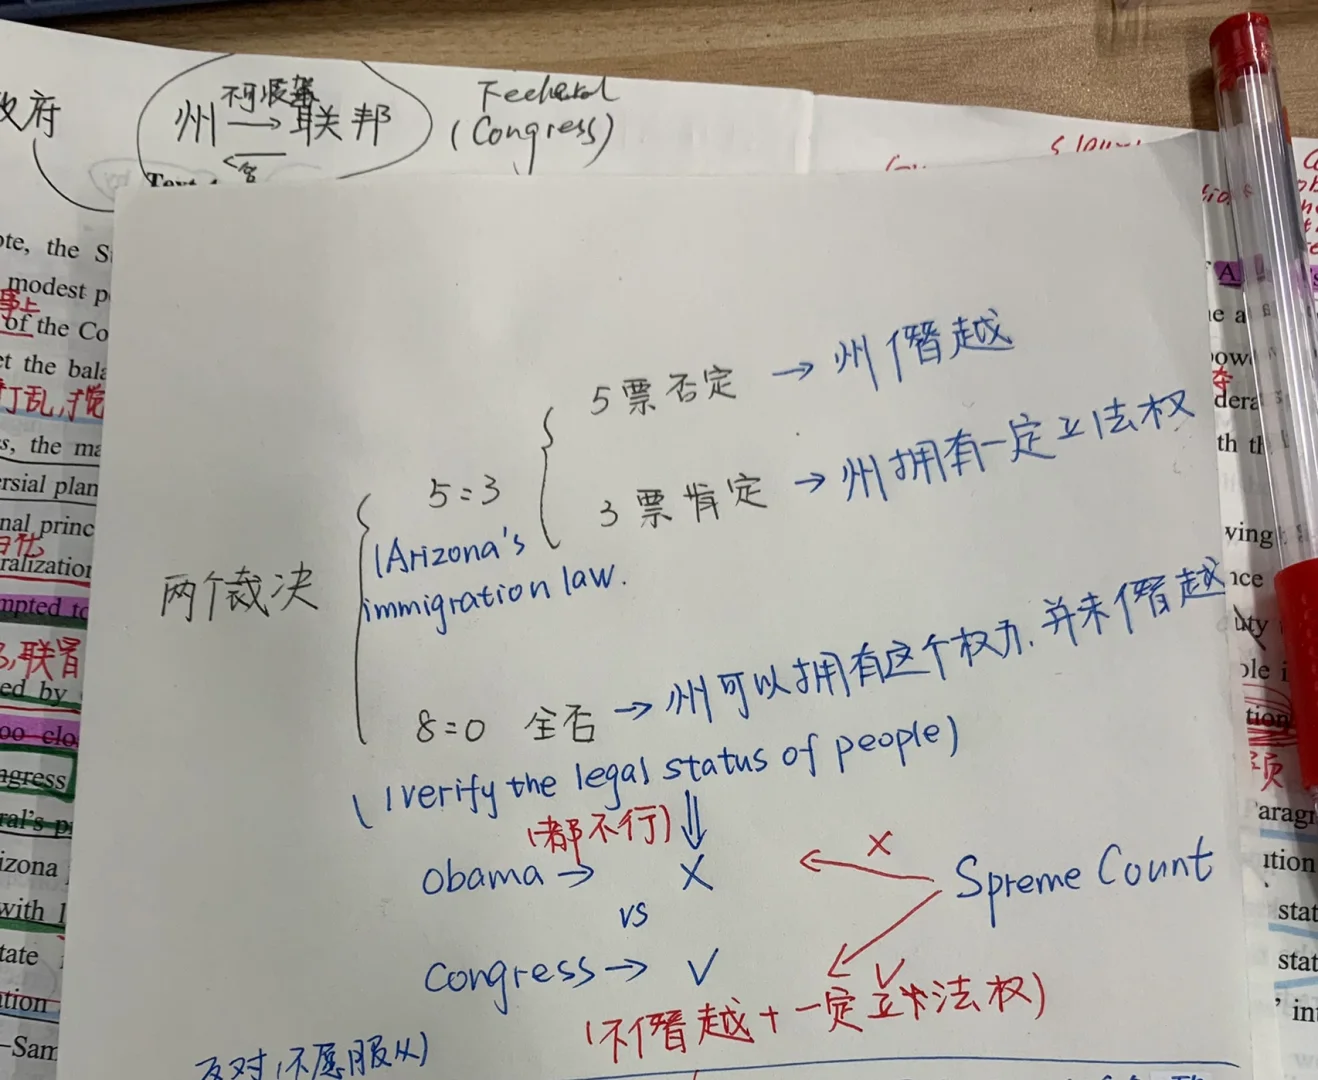 政府
州 → 联邦
Federal
(Congress)
ote, the S
modest p
of the Co
et the bala
打乱,
s, the ma
ersial plan
nal princ
ralization
mpted to
联
ed by
oo clo
ngress
ral's p
izona
with I
tate
tion
—Sam
5票否定 → 州僭越
3票肯定 → 州拥有一定立法权
5:3
(Arizona's
immigration law.
两个裁决
8:0 全否 → 州可以拥有这个权力.并未僭越
(verify the legal status of people)
(都不行)
obama → X
vs
congress → V
X
Spreme Count
V
(不僭越+一定立法权)
反对(不愿服从)
A
th th
ving
nce
uty
ole i
tion
Paragr
ition
stat
stat
' in